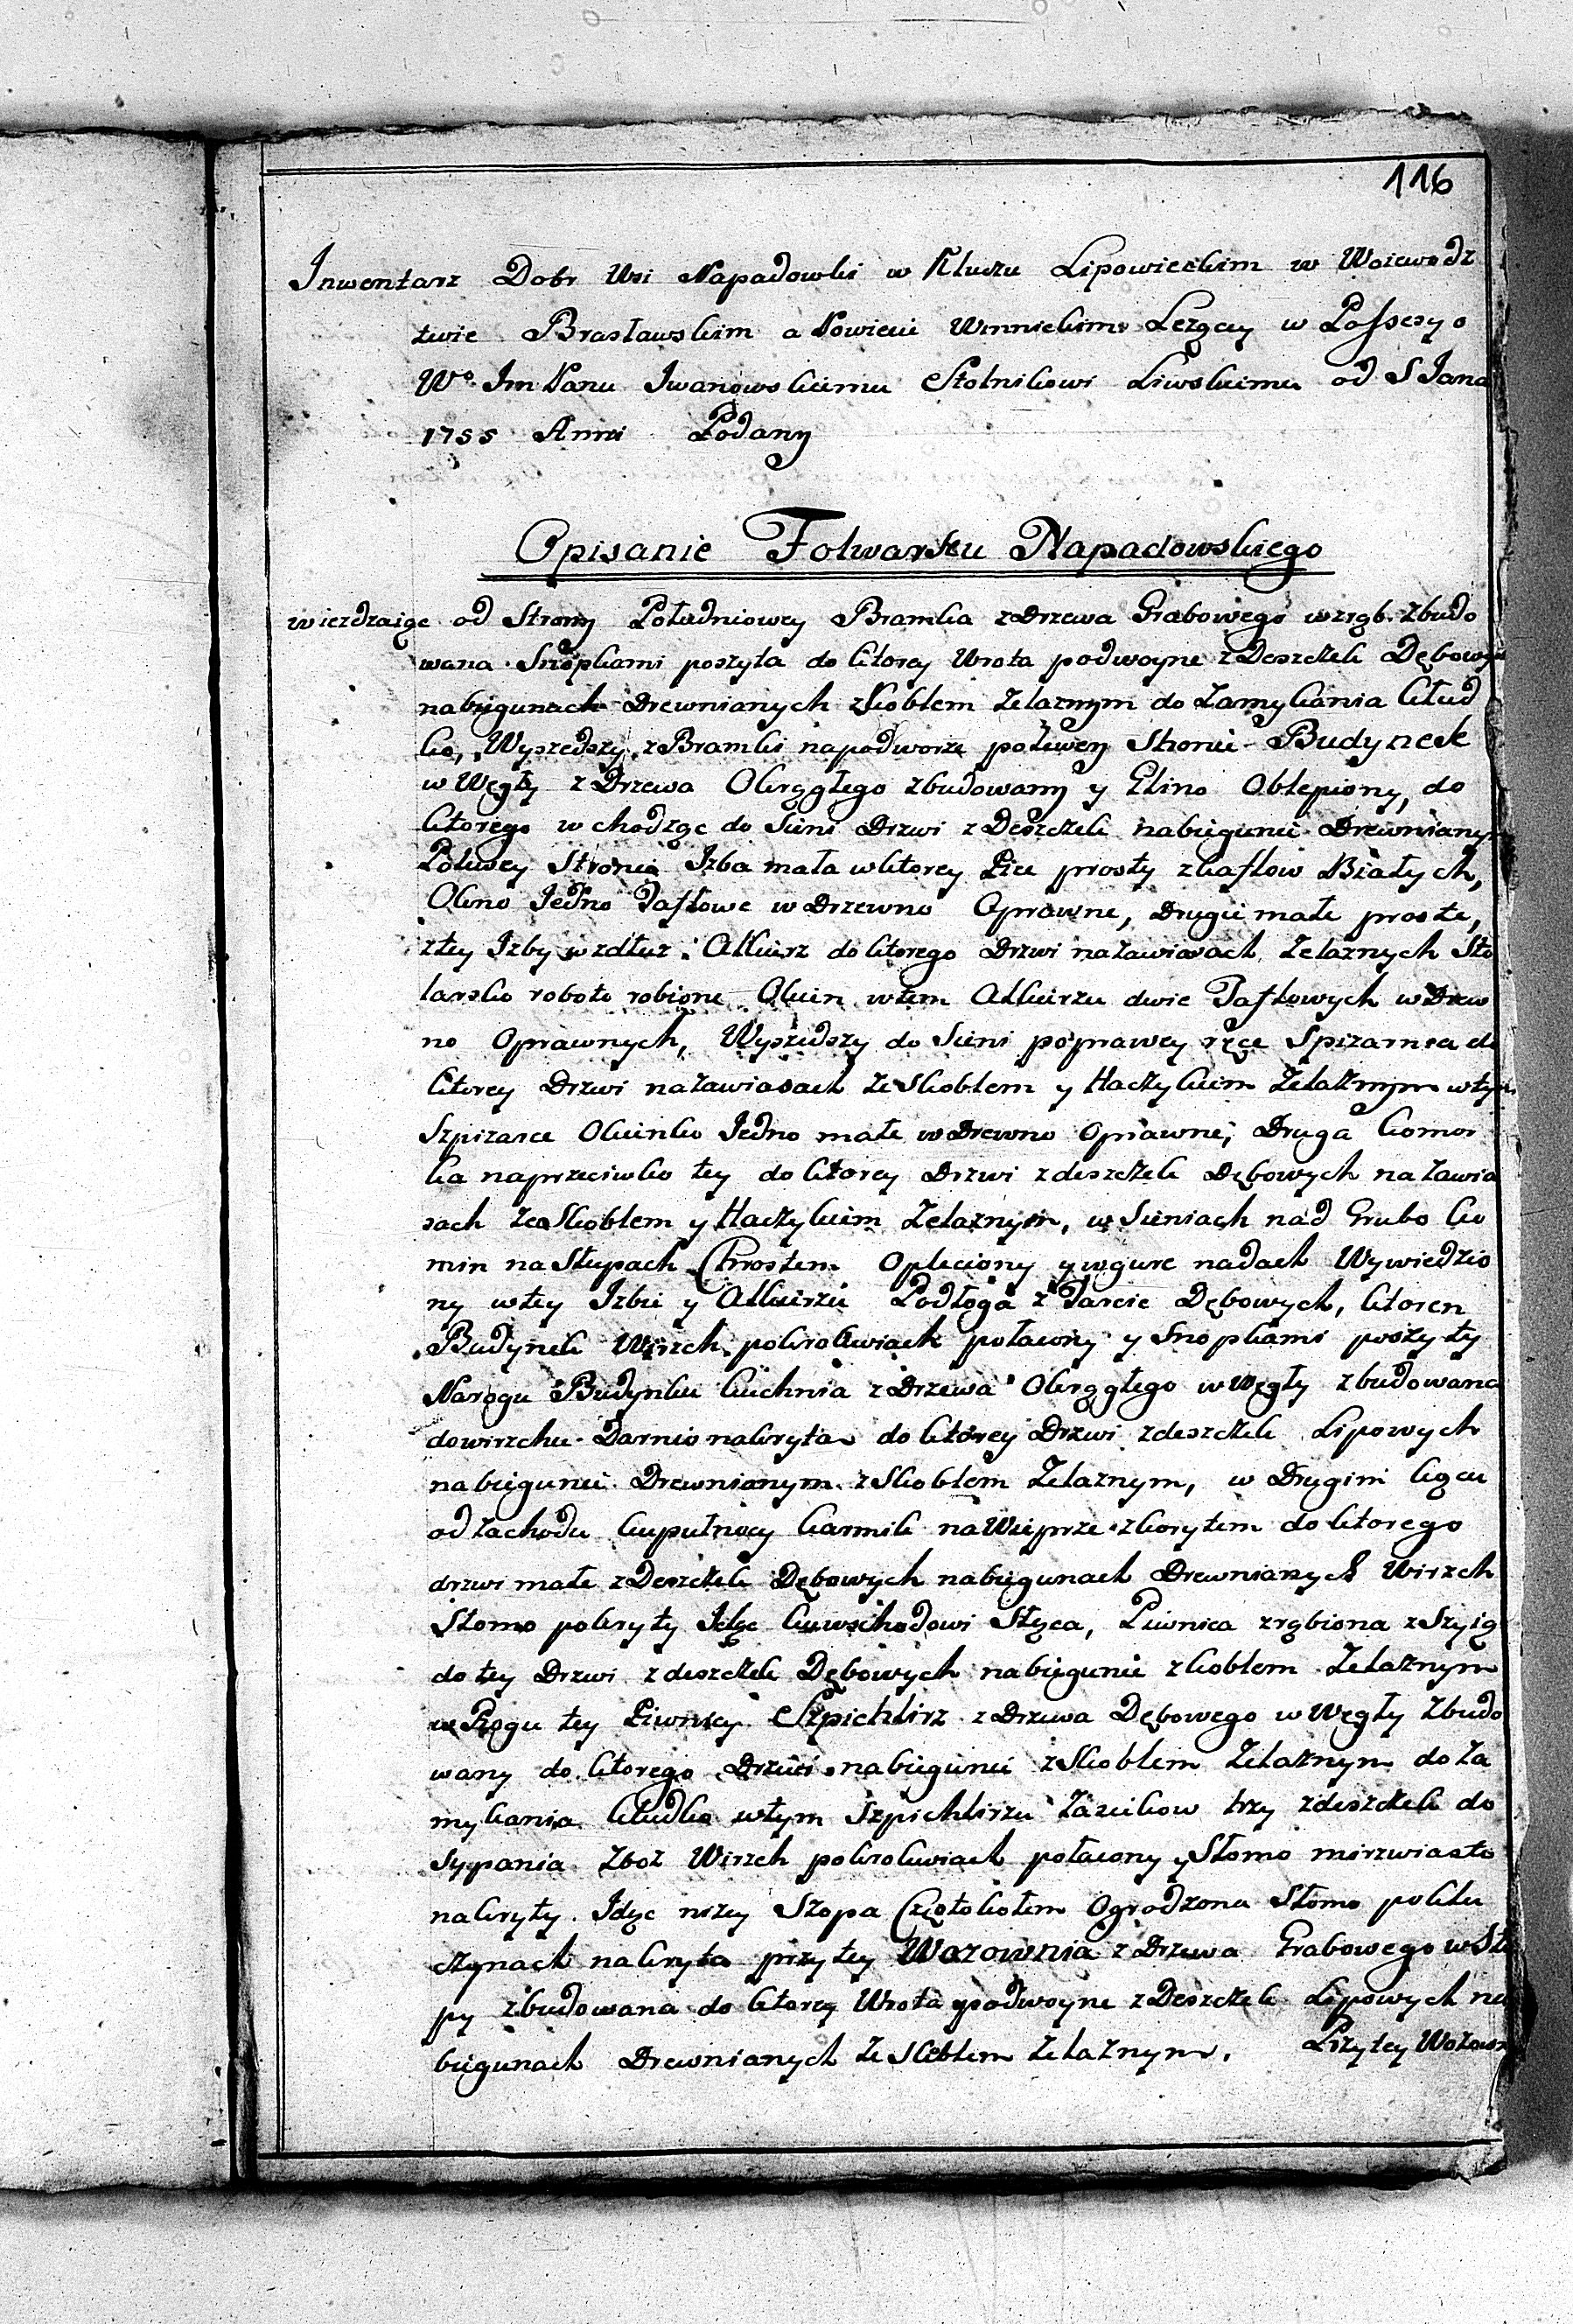 116
Inwentarz Dobr Wsi Napadowki w Kluczu Lipowieckim w Woiewodz
twie Brasławskim a Powiecie Winnickim Leżącey w Possesyo
Wo. Im Panu Iwanowskiemu Stolnikowi Liwskiemu od S Jana
1755 Anni Podany
Opisanie Folwarku Napadowskiego
wieżdzaiąc od Strony Południowey Bramka z Drzewa Grabowego wzrąb. zbudo
wana. Snopkami poszyta do ktorey Wrota podwoyne z Deszczek Dębowych
nabiegunach Drewnianych zSkoblem żelaznym do zamykania kłud
ko, Wyszedszy z Bramki napodworze polewey Stronie Budynek
w Węgły z Drzewa Okrągłego zbudowany y Glino Oblepiony, do
ktorego wchodząc do Sieni Drzwi z Deszczek nabiegunie Drewnianym
Polewey Stronie Izba mała wktorey Piec prosty zkaflow Białych,
Okno Jedno Taflowe w Drzewno Oprawne, Drugie małe proste,
ztey Izby wzdłuż Alkierz do ktorego Drzwi nazawiasach Żelaznych Sto
larsko roboto robione Okien wtem Alkierzu dwie Taflowych w Drew
no Oprawnych, Wyszedszy do Sieni poprawey ręce Spizarnia do
ktorey Drzwi nazawiasach ze Skoblem y Haczykiem Żelaznym wtey
Szpizarce Okienko Jedno małe w Drewno Oprawne, Druga komor
ka naprzeciwko tey do ktorey Drzwi zdeszczek Dębowych na zawia
sach ze Skoblem y Haczykiem Żelaznym, w Sieniach nad Grubo Ko
min na Słupach Chrostem Opleciony ywgure nadach Wywiedzio
ny wtey Izbie y Alkierzu Podłoga z Tarcic Dębowych, ktoren
Budynek Wirzch pokrokwiach połacony y Snopkami poszyty
Narogu Budynku kuchnia z Drzewa Okrągłego w Węgły zbudowana
dowirzchu Darnio nakryta do ktorey Drzwi zdeszczek Lipowych
nabiegunie Drewnianym zSkoblem Żelaznym, w Drugim kącu
od zachodu kupułnocy karmik na Wieprze zkorytem do ktorego
drzwi małe z Deszczek Dębowych nabiegunach Drewnianych Wirzch
Słomo pokryty Idąc kuwschodowi Słąca, Piwnica zrąbiona z Szyią
do tey Drzwi zdeszczek Dębowych nabiegunie zkoblem Żelaznym
w Rogu tey Piwnicy Szpichlirz z Drzewa Dębowego w Węgły zbudo
wany do ktorego Drzwi nabiegunie zSkoblem Żelaznym do za
mykania kłudko wtym Szpichlirzu Zasiekow trzy zdeszczek do
sypania Zboz Wirzch pokrokwiach połacony y Słomo mirzwiasto
nakryty. Idąc niżey Szopa Częstokołem Ogrodzona Słomo poklu
czynach nakryta przytey Wozownia z Drzewa Grabowego w Słu
py zbudowana do ktorey Wrota podwoyne z Deszczek Lipowych na
biegunach Drewnianych ze Skoblem Żelaznym. Przytey Wozown